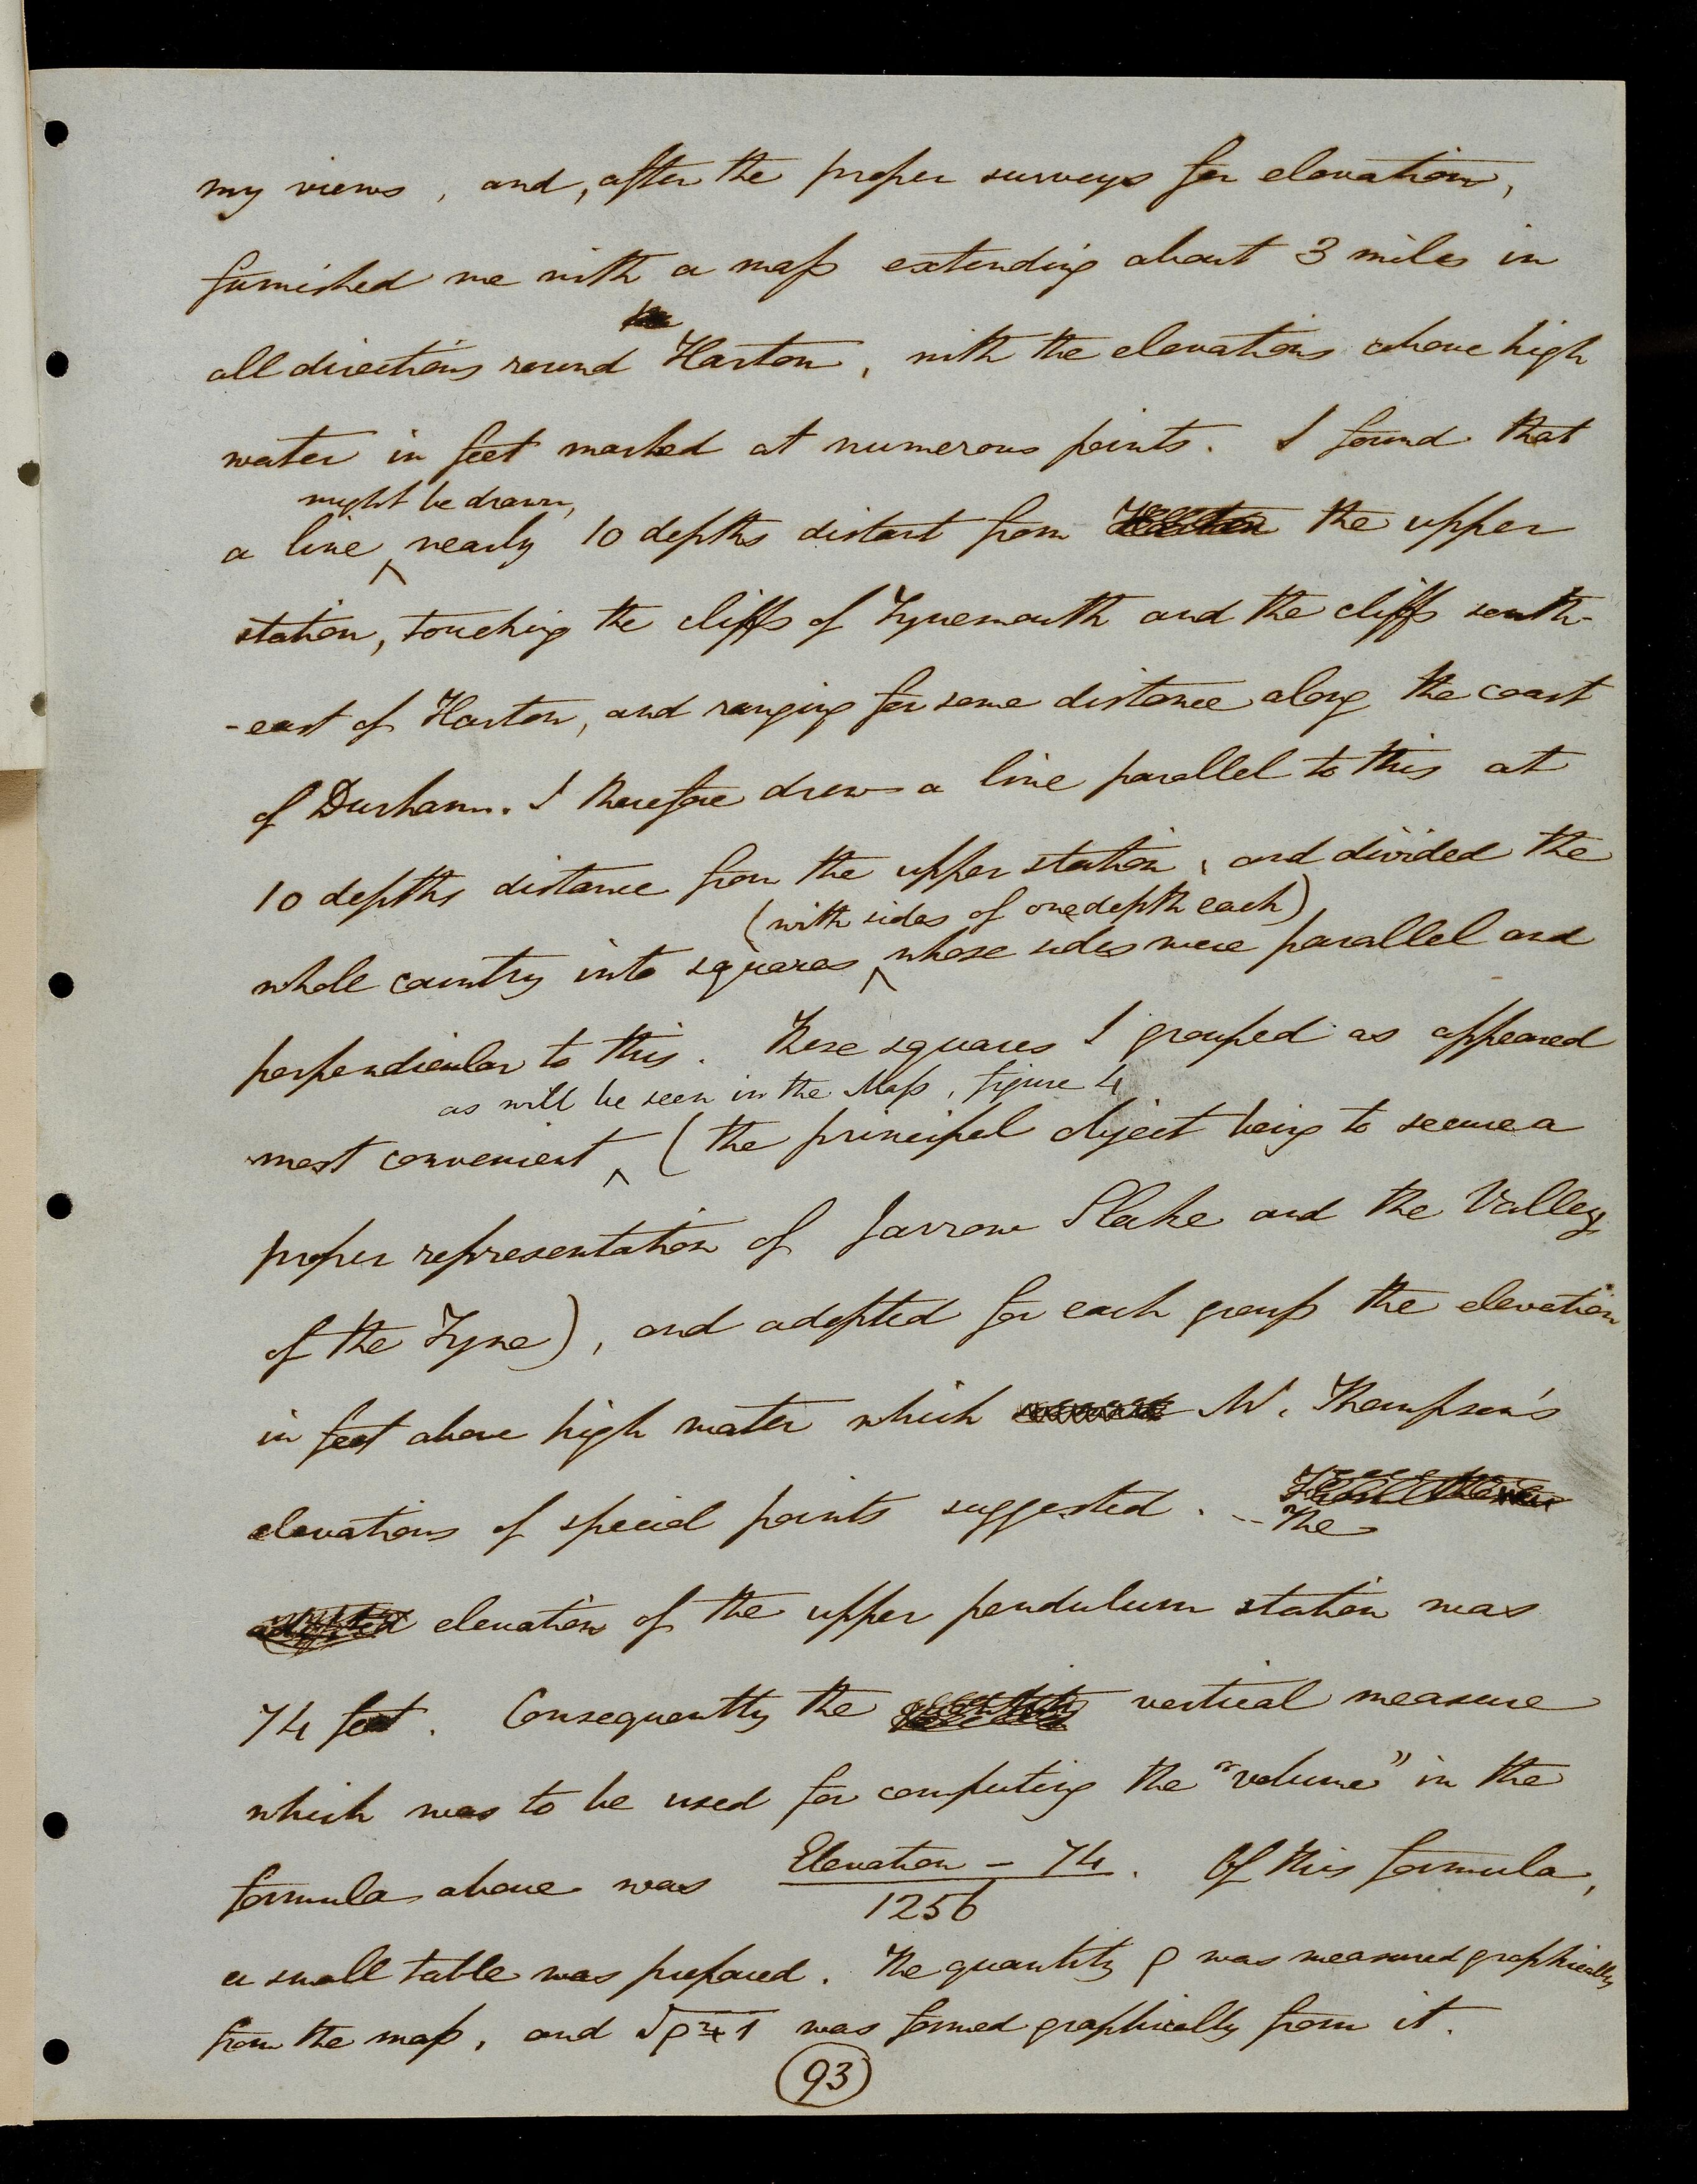 my views, and, after the proper surveys for elevations,
furnished me with a map extending about 3 miles in
all directions round Harton, with the elevations above high
water in feet marked at numerous points. I found that
might be drawn,
a line ^ nearly 10 depths distant from the upper
station, touching the cliffs of Tynemouth and the cliffs south-
-east of Harton, and ranging for some distance along the coast
of Durham. I therefore drew a line parallel to this at
10 depths distance from the upper station, and divided the
(with sides of one depth each)
whole country into squares ^ whose sides were parallel and
perpendicular to this. These squares I grouped as appeared
as will be seen in the Map, figure 4
most convenient ^ (the principal object being to secure a
proper representation of Jarrow Slake and the Valley
of the Tyne), and adopted for each group the elevation
in feet above high water which Mr. Thompson's
elevations of special points suggested. The
adopted elevation of the upper pendulum station was
74 feet. Consequently the vertical measure
which was to be used for computing the "volume" in the
formula above was Elevation - 74 / 1256. Of this formula,
a small table was prepared. The quantity ρ was measured graphically
from the map, and √ρ²+1 was formed graphically from it.
93